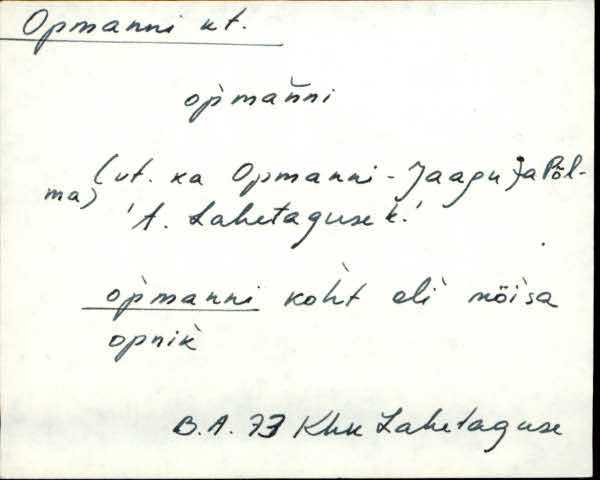 Opmanni kt.
op̀man̆ni
(vt. ka Opmanni-Jaagu ja Põl-
ma)
'A. Lahetaguse k.'
op̀manni koh̀t oli mõìsa
opnik̀
B.A. 73 Khk Lahetaguse